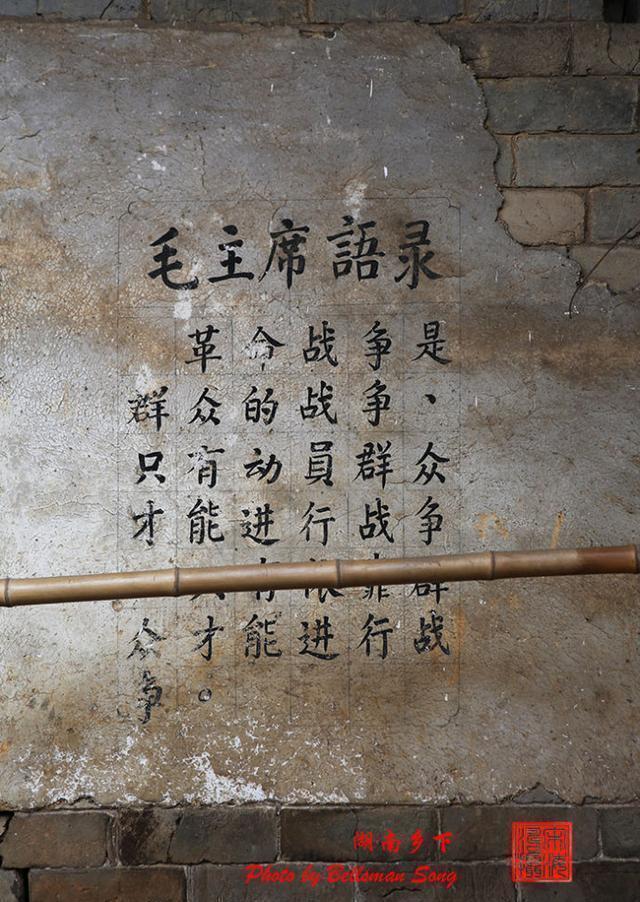 毛主席語录
革命战争是
群众的战争、
只有动員群众
才能进行战争
只有依靠群
众才能进行战
争。
湖南乡下
Photo by Beilsman Song